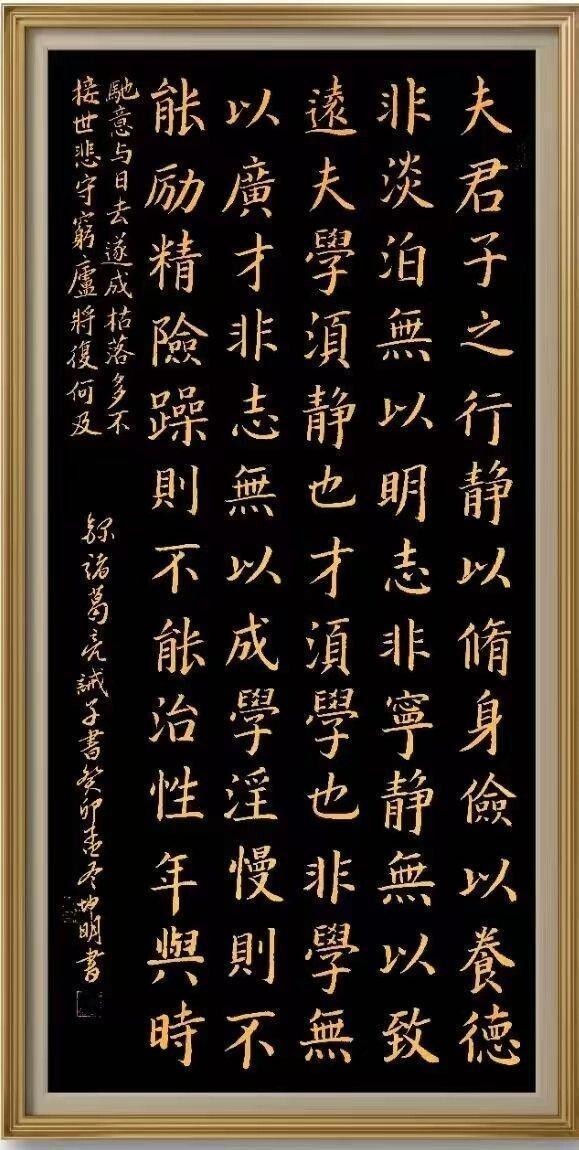 夫君子之行静以脩身儉以養德
非淡泊無以明志非寧静無以致
遠夫學須静也才須學也非學無
以廣才非志無以成學淫慢則不
能励精險躁則不能治性年與時
馳意与日去遂成枯落多不
接世悲守窮廬將復何及
録諸葛亮誡子書癸卯孟冬坤明書